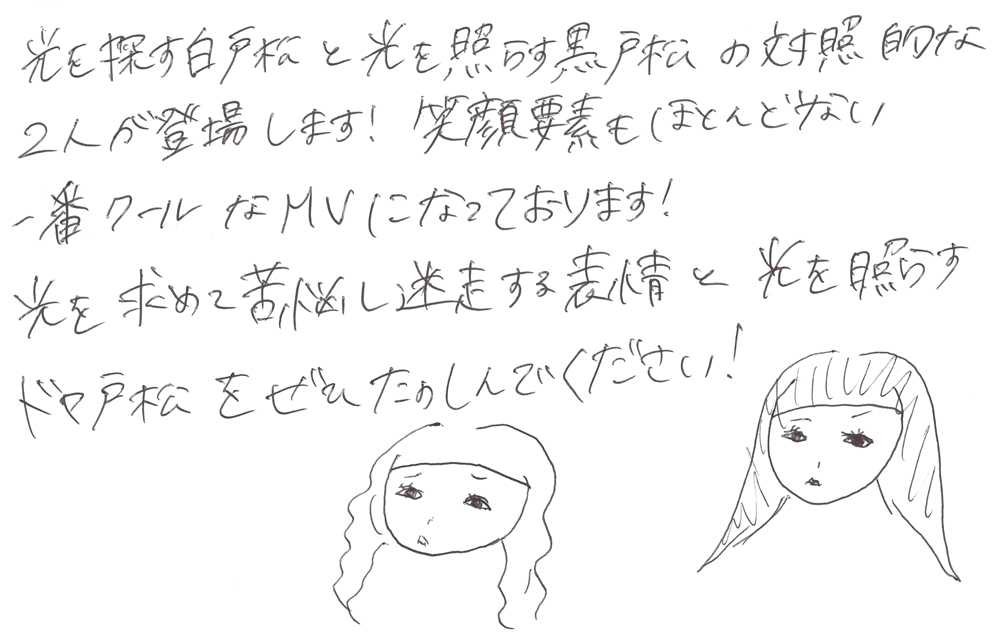 光を探す白戸松と光を照らす黒戸松の対照的な
2人が登場します！笑顔要素もほとんど少ない
一番クールなMVになっております！
光を求めて苦悩し迷走する表情と光を照らす
ドヤ戸松をぜひたのしんでください！